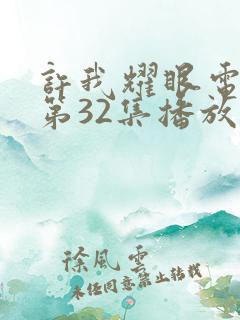 許我耀眼電
第32集播放
徐風雲
未經同意禁止轉載